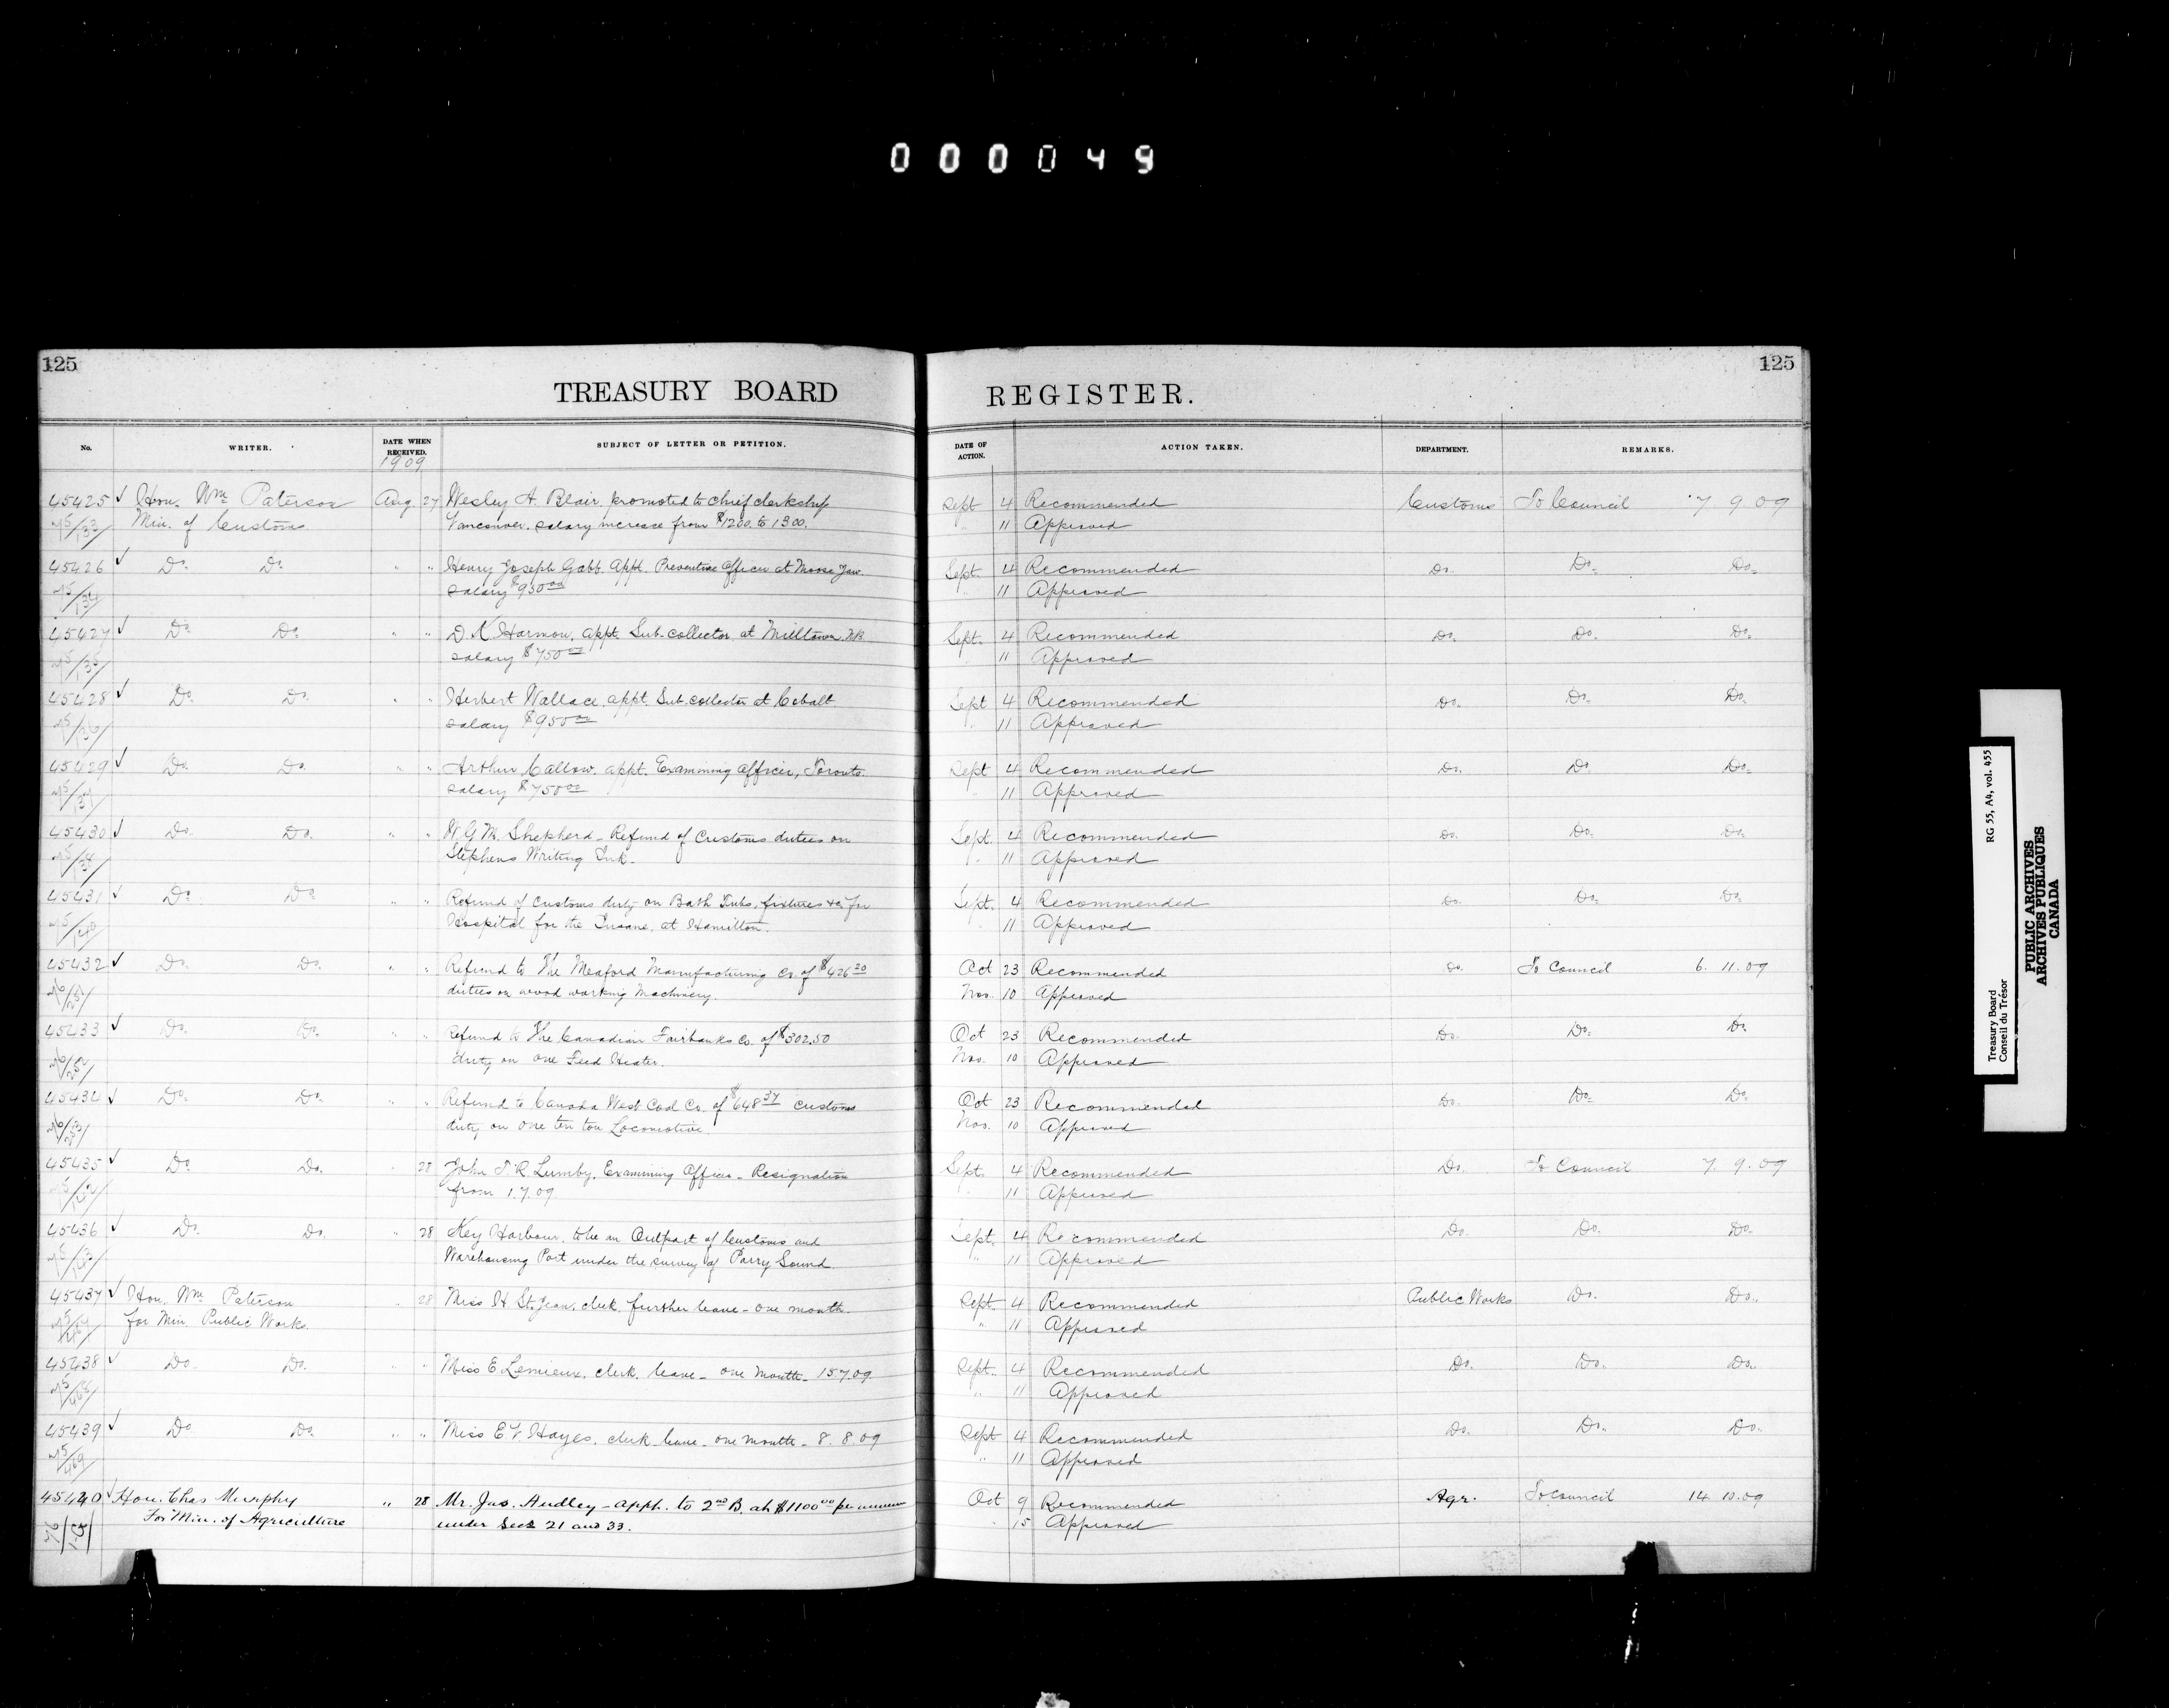 0000049
125
125
TREASURY BOARD REGISTER.
No. WRITER. DATE WHEN RECEIVED. SUBJECT OF LETTER OR PETITION. DATE OF ACTION. ACTION TAKEN. DEPARTMENT. REMARKS.
1909
45425 ✓ Hon. Wm Paterson Aug. 27 Wesley A. Blair, promoted to chief clerkship Sept 4 Recommended Customs To Council 7 9 09
Min. of Customs Vancouver. salary increase from $1200. to 1300. " 11 Approved
45426 ✓ Do. Do. " " Henry Joseph Gabb. Appt. Preventive Officer at Moose Jaw. Sept. 4 Recommended Do. Do. Do.
salary $950 00 " 11 Approved
45427 ✓ Do. Do. " " D. K. Harmon, appt. Sub-collector at Milltown. N.B. Sept. 4 Recommended Do. Do. Do.
salary $750 00 11 Approved
45428 ✓ Do. Do. " " Herbert Wallace, appt. Sub. collector at Cobalt Sept 4 Recommended Do. Do. Do.
salary $950 00 " 11 Approved
45429 ✓ Do. Do. " " Arthur Callow. appt. Examining Officer, Toronto. Sept 4 Recommended Do. Do. Do.
salary $750 00 " 11 Approved
45430 ✓ Do. Do. " " W. G. M. Shepherd - Refund of Customs duties on Sept. 4 Recommended Do. Do. Do.
Stephens Writing Ink. " 11 Approved
45431 ✓ Do. Do. " " Refund of customs duty on Bath Tubs, fixtures &c. for Sept. 4 Recommended Do. Do. Do.
Hospital for the Insane, at Hamilton. " 11 Approved
45432 ✓ Do. Do. " " Refund to The Meaford Manufacturing Co. of $426 30 Oct 23 Recommended Do. To Council 6. 11. 09
duties on wood working Machinery. Nov. 10 Approved
45433 ✓ Do. Do. " " Refund to The Canadian Fairbanks Co. of $302.50 Oct 23 Recommended Do. Do. Do.
duty on one Feed Heater. Nov. 10 Approved
45434 ✓ Do. Do. " " Refund to Canada West Coal Co. of $648 37 customs Oct 23 Recommended Do. Do. Do.
duty on one ten ton Locomotive. Nov. 10 Approved
45435 ✓ Do. Do. " 28 John T. R. Lumby, Examining Officer - Resignation Sept. 4 Recommended Do. To Council 7. 9. 09
from 1.7.09 " 11 Approved
45436 ✓ Do. Do. " 28 Key Harbour, to be an Outport of Customs and Sept. 4 Recommended Do. Do. Do.
Warehousing Port under the survey of Parry Sound. " 11 Approved
45437 ✓ Hon. Wm Paterson " 28 Miss H St. Jean, clerk, further leave - one month. Sept. 4 Recommended Public Works Do. Do.
for Min. Public Works. " 11 Approved
45438 ✓ Do. Do. " " Miss E Lemieux, clerk, leave - one month - 15.7.09. Sept. 4 Recommended Do. Do. Do.
" 11 Approved
45439 ✓ Do Do. " " Miss E V Hayes, clerk leave - one month - 8. 8. 09 Sept 4 Recommended Do. Do. Do.
" 11 Approved
45440 ✓ Hon. Chas Murphy " 28 Mr. Jas. Audley - appt. to 2nd B. at $1100 00 per annum Oct 9 Recommended Agr. To Council 14. 10. 09
For Min. of Agriculture under Secs 21 and 33. " 15 Approved
Treasury Board RG 55, A4, vol. 455
Conseil du Trésor
PUBLIC ARCHIVES
ARCHIVES PUBLIQUES
CANADA